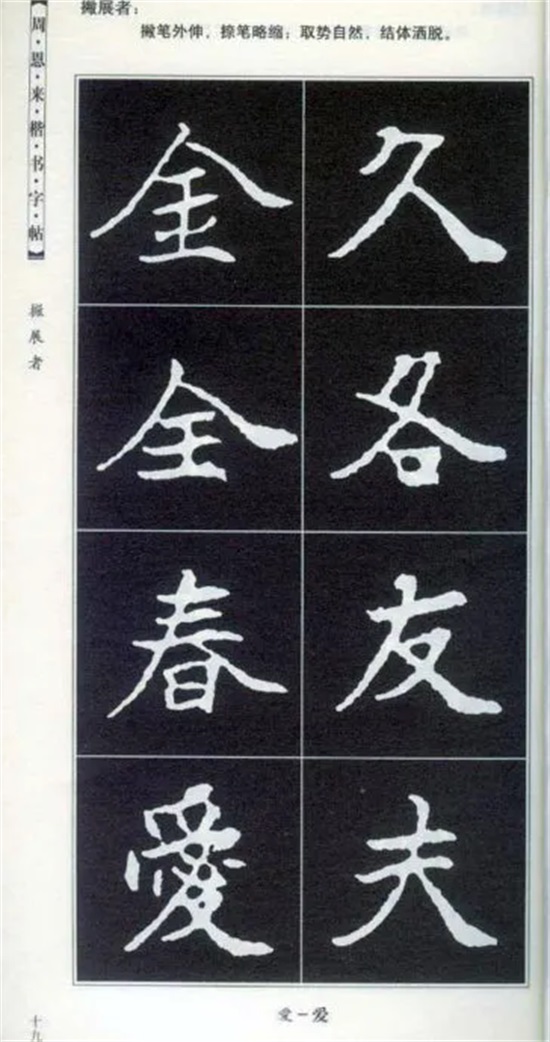 撇展者：
撇笔外伸，捺笔略缩；取势自然，结体洒脱。
【周·恩·来·楷·书·字·帖】
撇展者
久各友夫
金全春愛
愛－爱
十九